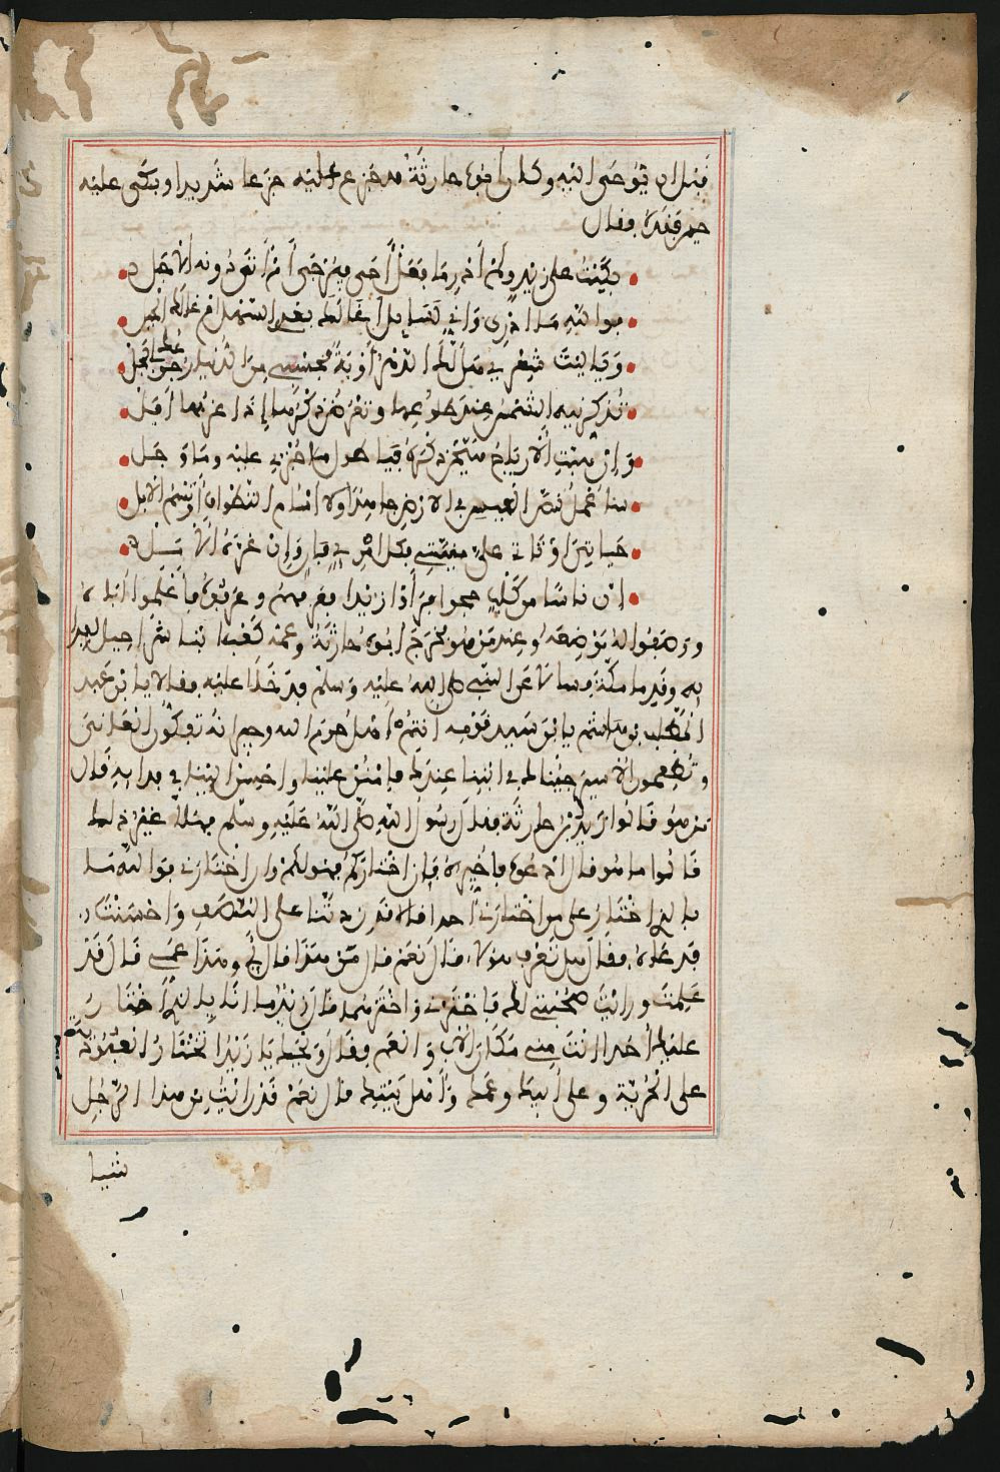 قبل ان يوحى اليه وكان ابوه حارثة قد جزع عليه جزعا شديدا وبكى عليه
حين فقده فقال
بكيت على زيد ولم ادر ما فعل احى فيرجى ام اتى دونه الاجل
فوالله ما ادرى واني لسايل اغالك بعدي السهل ام غالك الجبل
ويا ليت شعري هل لك الدهر اوبة فحسبي من الدنيا رجوعك لي بجل
تذكرنيه الشمس عند طلوعها وتعرض ذكراه اذا غربها افل
وان هبت الارياح هيجن ذكره فيا طول ما حزني عليه وما وجل
ساعمل نص العيس في الارض جاهدا ولا اسام التطواف او تسم الابل
حياتي او تاتي علي منيتي فكل امرئ فان وان غره الامل
ان ناسا من كلب حجوا فراوا زيدا فعرفهم وعرفوه فاعلموا اباه
ووصفوا له موضعه وعند من هو فخرج ابوه حارثة وعمه كعب ابنا شراحيل لفدا
به وقدما مكة وسالا عن النبي صلى الله عليه وسلم فدخلا عليه فقالا يا بن عبد
المطلب بن هاشم يا بن سيد قومه انتم اهل حرم الله وجيرانه تفكون العاني
وتطعمون الاسير جيناك في ابننا عندك فامنن علينا واحسن الينا في فدايه قال
من هو قالوا زيد بن حارثة فقال رسول الله صلى الله عليه وسلم فهلا غير ذلك
قالوا ما هو قال ادعوه فاخيره فان اختاركم فهو لكم وان اختارني فوالله ما
بالذي اختار على من اختارني احدا قالا قد زدتنا على النصف واحسنت
فدعاه فقال هل تعرف هولاء قال نعم قال من هذا قال ابي وهذا عمي قال قد
علمت ورايت صحبتي لك فاخترني واخترهما قال زيد ما انا بالذي اختار
عليك احدا انت مني مكان الاب والعم فقالا ويحك يا زيد اتختار العبودية
على الحرية وعلى ابيك وعمك واهل بيتك قال نعم قد رايت من هذا الرجل
شيا